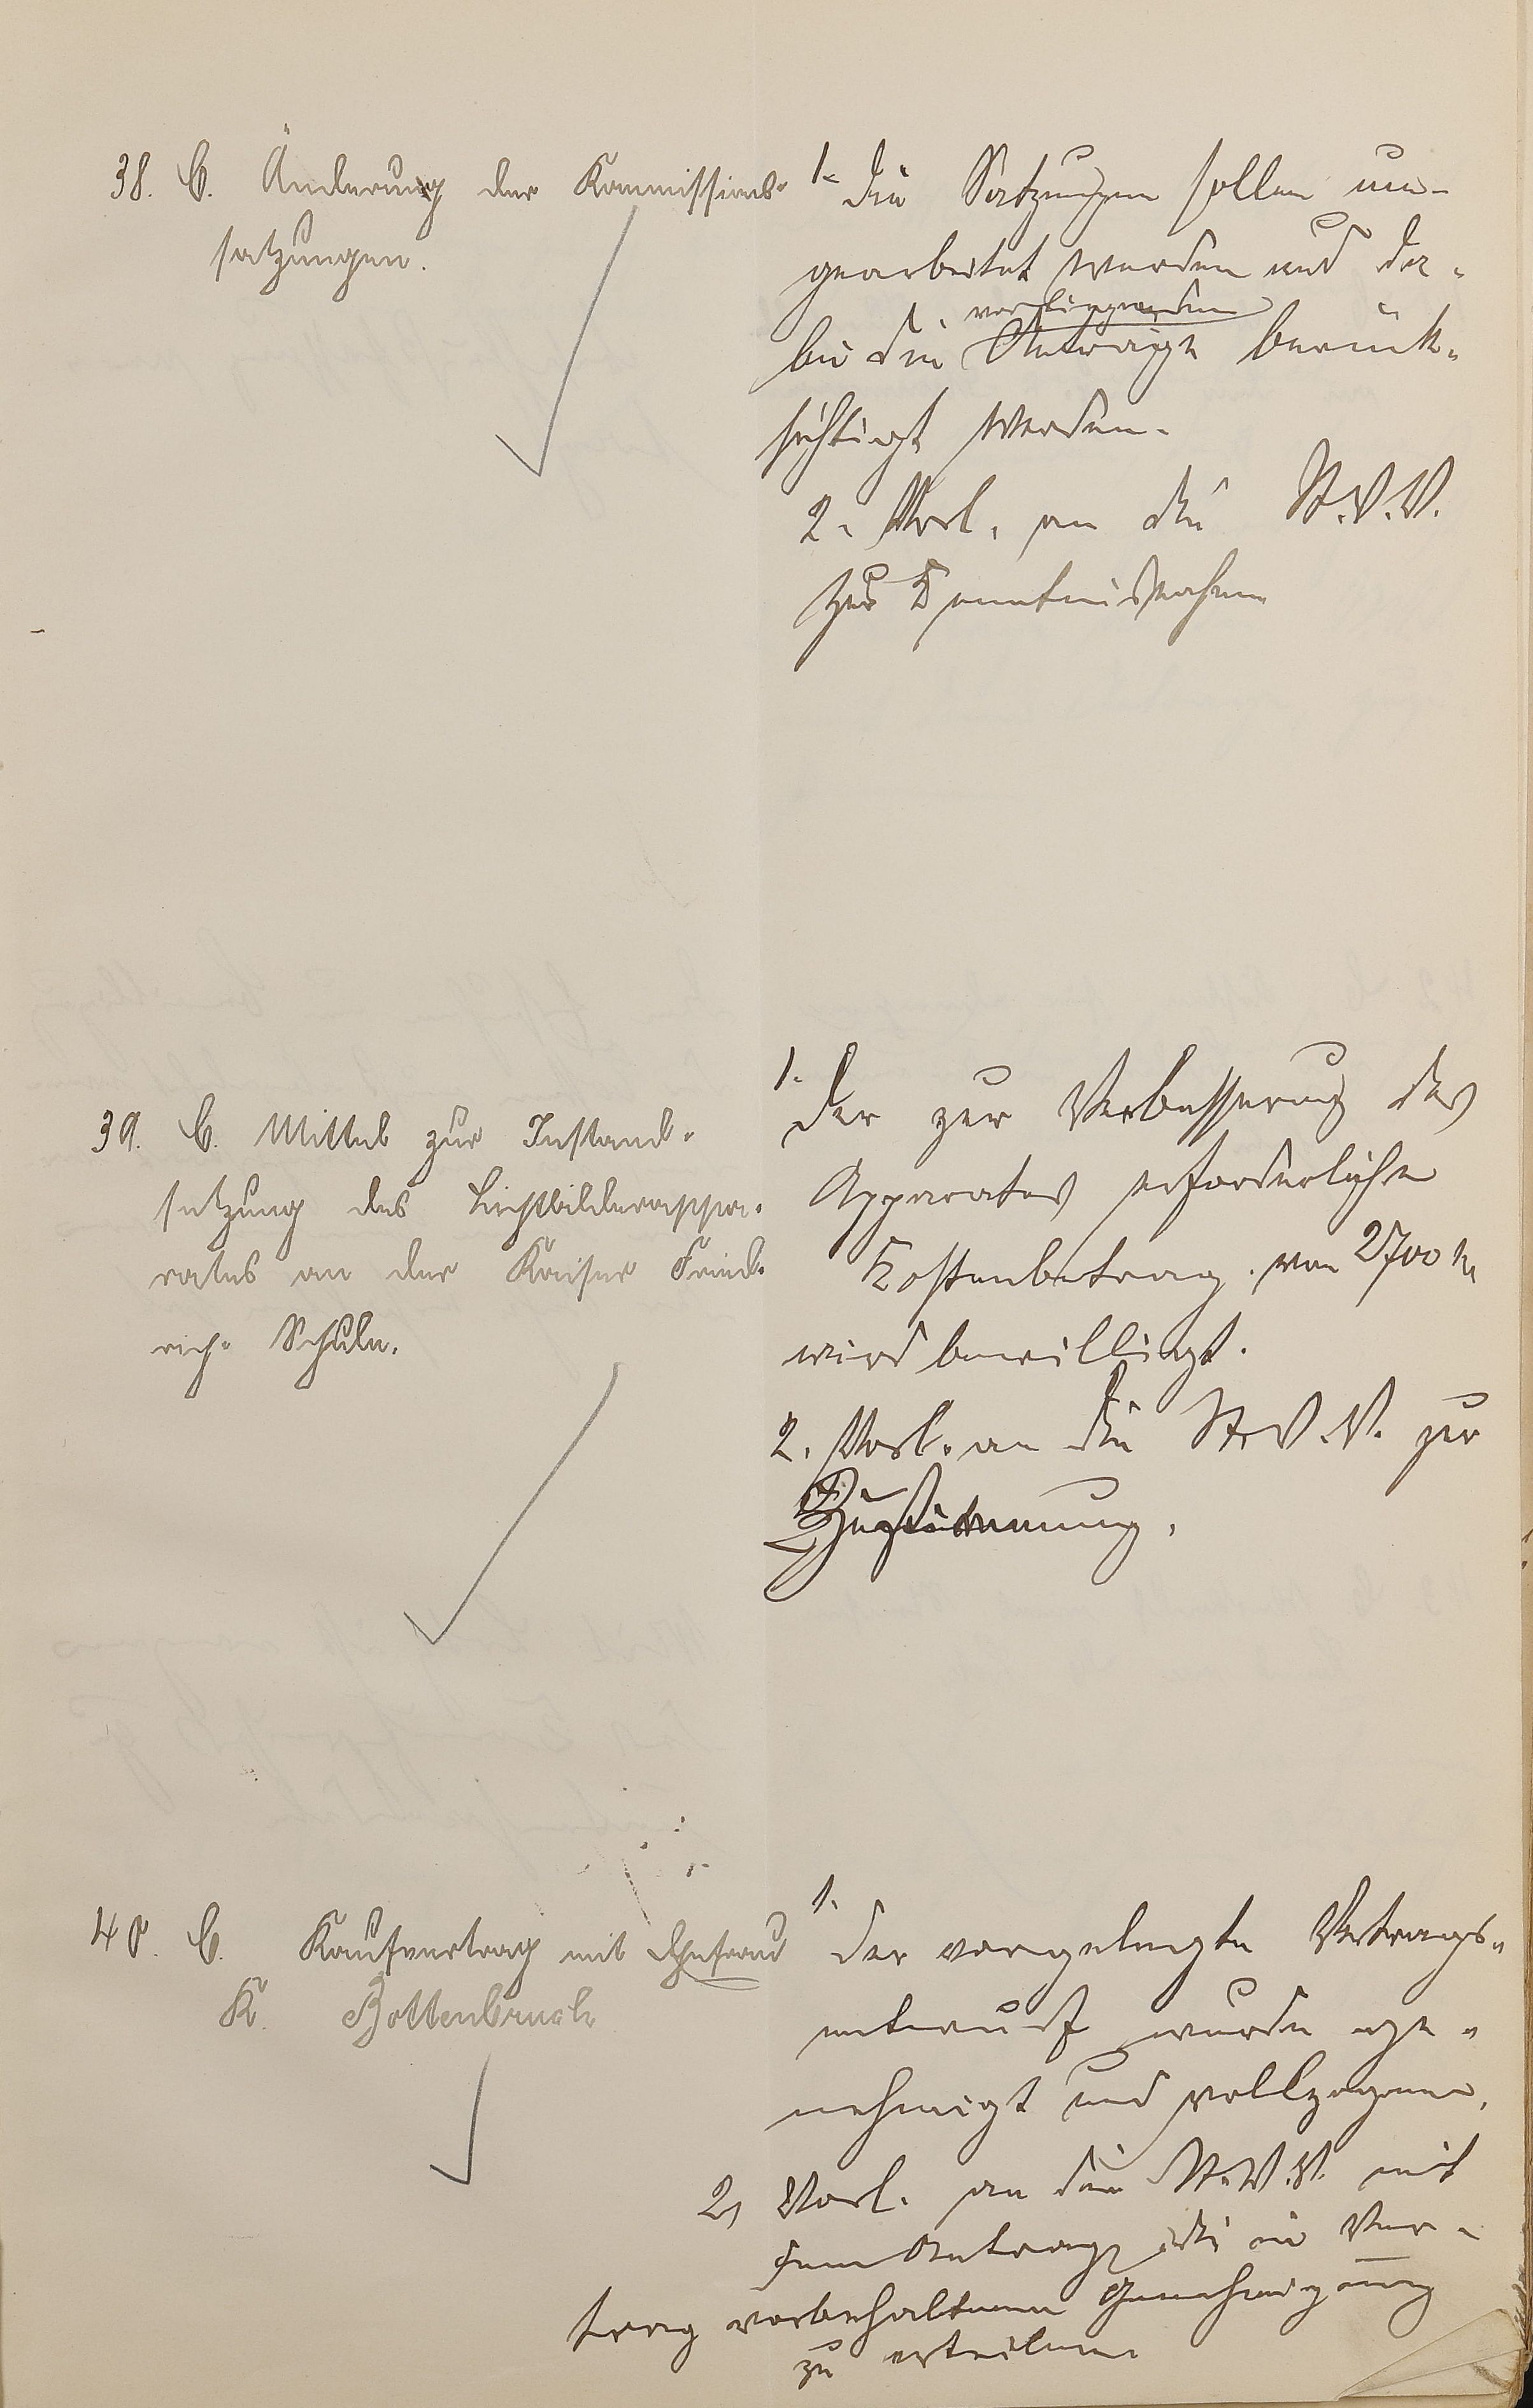 38. C. Änderung der Kommissions-
satzungen.
1. Die Satzungen sollen um-
gearbeitet werden und da-
vorliegenden
bei die Anträge berück-
sichtigt werden.
2. Vorl. an die St.V.V.
zur Kenntnisnahme
39. C. Mittel zur Instand-
setzung des Lichtbilderappa-
rates an der Kaiser Fried-
rich- Schule.
1.
Der zur Verbesserung des
Apparates erforderliche
Kostenbetrag von 2700 M
wird bewilligt.
2. Vorl. an die St.V.V. zur
Zustimmung.
40. C. Kaufvertrag mit Ehefrau
K. Bottenbruch
1.
Der vorgelegte Vertrags-
entwurf wurde ge-
nehmigt und vollzogen.
2, Vorl. an die St.V.V. mit
dem Antrag, die im Ver-
trag vorbehaltene Genehmigung
zu erteilen.